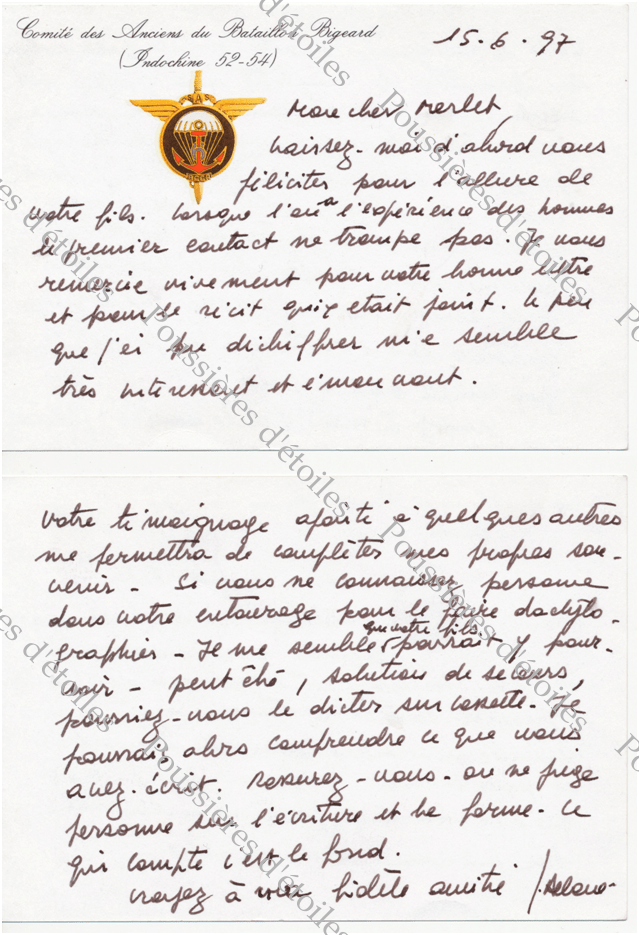 Comité des Anciens du Bataillon Bigeard
(Indochine 52-54)
15.6.97
SAS
Mon cher Merlet,
Laissez-moi d'abord vous
féliciter pour l'allure de
votre fils. Lorsque l'on a l'expérience des hommes
le premier contact ne trompe pas. Je vous
remercie vivement pour votre bonne lettre
et pour le récit qui y etait joint. Le peu
que j'ai pu déchiffrer m'a semblé
très intéressant et émouvant.
Votre témoignage ajouté à quelques autres
me permettra de compléter mes propres sou-
venir - Si vous ne connaissez personne
dans votre entourage pour le faire dactylo-
graphier - Je me semble que votre fils parrait y pour-
voir - peut être, solution de secours,
pourriez-vous le dicter sur cassette. Je
pourrai alors comprendre ce que vous
avez écrit. Rassurez-vous - on ne juge
personne sur l'écriture et la forme - ce
qui compte c'est le fond.
Croyez à ma fidèle amitié
Poussières d'étoiles